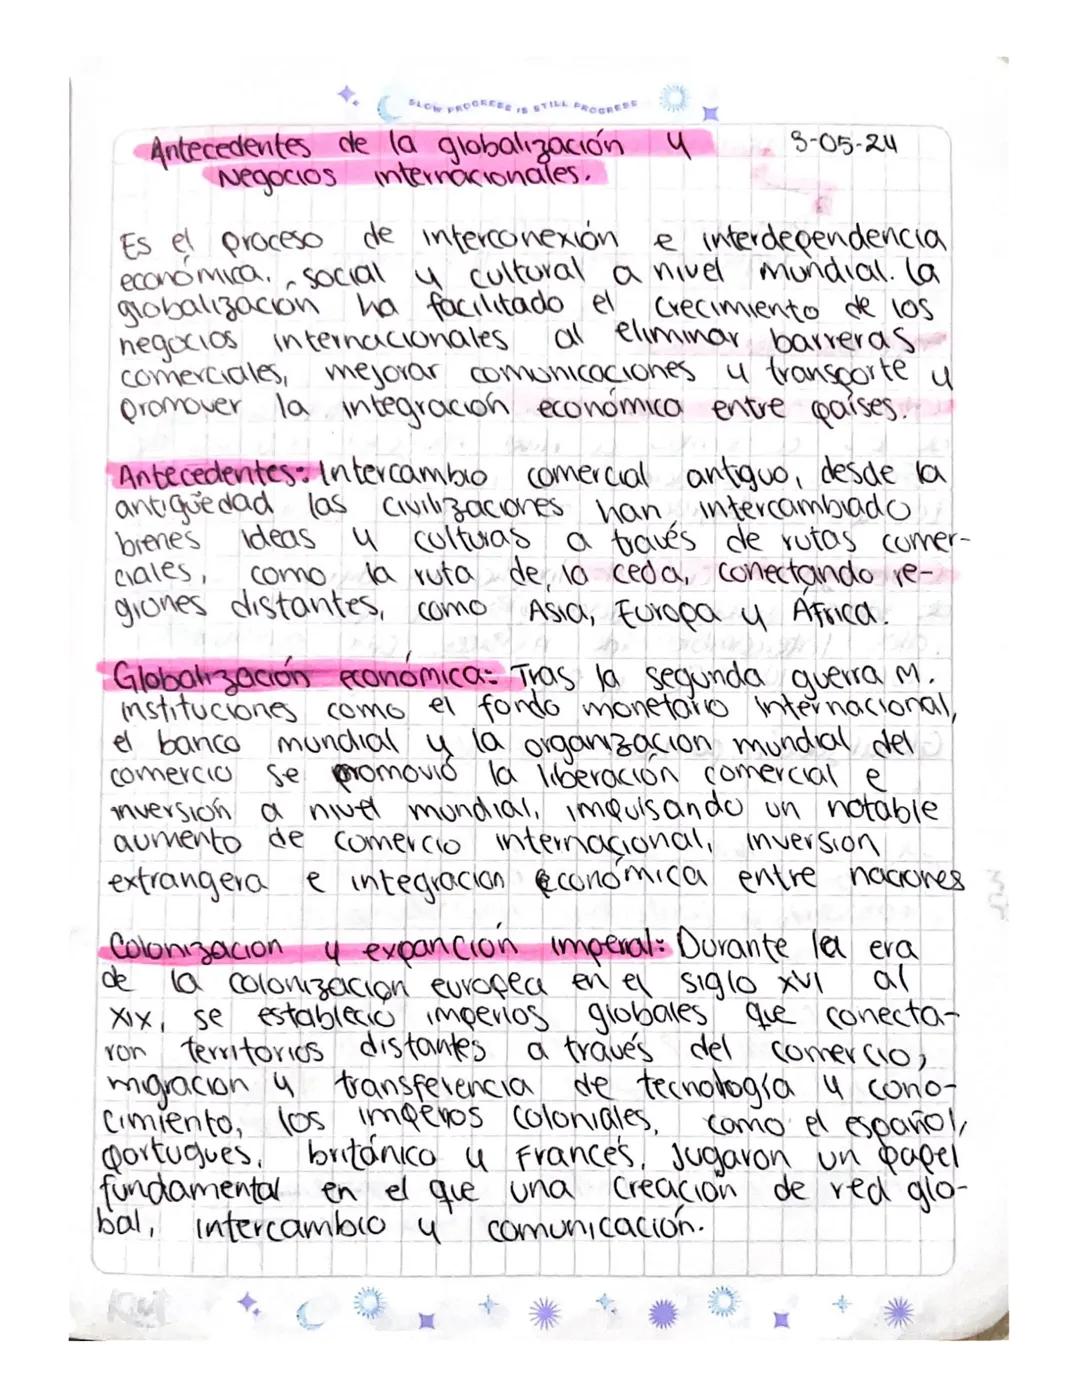 SLOW PROGRESS IS STILL PROGRESS
Antecedentes de la globalización y 3-05-24
Negocios internacionales.
Es el proceso de interconexión e interdependencia
económica, social y cultural a nivel mundial. La
globalización ha facilitado el crecimiento de los
negocios internacionales al eliminar barreras
comerciales, mejorar comunicaciones y transporte y
promover la integración económica entre países.
Antecedentes: Intercambio comercial antiguo, desde la
antigüedad las civilizaciones han intercambiado
bienes ideas y culturas a través de rutas comer-
ciales, como la ruta de la ceda, conectando re-
giones distantes, como Asia, Europa y África.
Globalización económica: Tras la segunda guerra M.
instituciones como el fondo monetario internacional,
el banco mundial y la organizacion mundial del
comercio se promovió la liberación comercial e
inversión a nivel mundial, impulsando un notable
aumento de comercio internacional, inversion
extrangera e integracion económica entre naciones
Colonizacion y expanción imperal: Durante la era
de la colonizacion europea en el siglo XVI al
XIX, se establecio imperios globales que conecta-
ron territorios distantes a través del comercio,
migracion y transferencia de tecnología y cono-
cimiento, los imperios coloniales, como el español,
portugues, británico y Francés, jugaron un papel
fundamental en el que una creación de red glo-
bal, intercambio y comunicación.